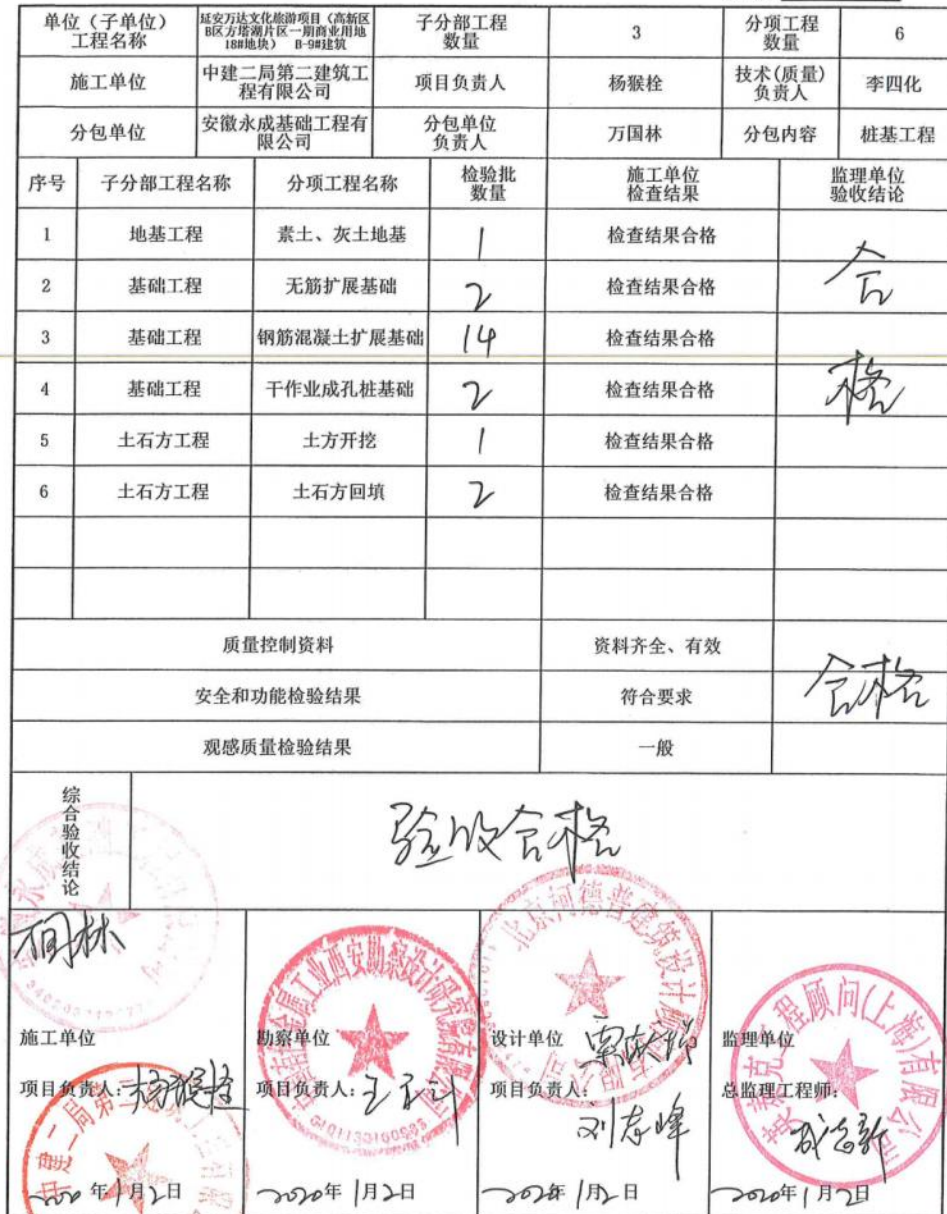 单位（子单位）
工程名称
延安万达文化旅游项目（高新区
B区方塔湖片区一期商业用地
18#地块） B-9#建筑
子分部工程
数量
3
分项工程
数量
6
施工单位
中建二局第二建筑工
程有限公司
项目负责人
杨猴栓
技术(质量)
负责人
李四化
分包单位
安徽永成基础工程有
限公司
分包单位
负责人
万国林
分包内容
桩基工程
序号
子分部工程名称
分项工程名称
检验批
数量
施工单位
检查结果
监理单位
验收结论
1 地基工程 素土、灰土地基 1 检查结果合格
2 基础工程 无筋扩展基础 2 检查结果合格
3 基础工程 钢筋混凝土扩展基础 14 检查结果合格
4 基础工程 干作业成孔桩基础 2 检查结果合格
5 土石方工程 土方开挖 1 检查结果合格
6 土石方工程 土石方回填 2 检查结果合格
合
格
质量控制资料 资料齐全、有效
安全和功能检验结果 符合要求
合格
观感质量检验结果 一般
综合验收结论
验收合格
施工单位
项目负责人：杨猴栓
年1月2日
勘察单位
项目负责人：
2020年1月2日
设计单位
项目负责人：
刘志峰
2020年1月2日
监理单位
总监理工程师：
2020年1月2日